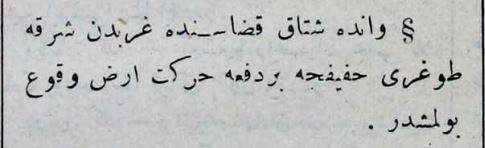 § وانده شتاق قضاسنده غربدن شرقه
طوغرى حفيفجه بردفعه حركت ارض وقوع
بولمشدر .